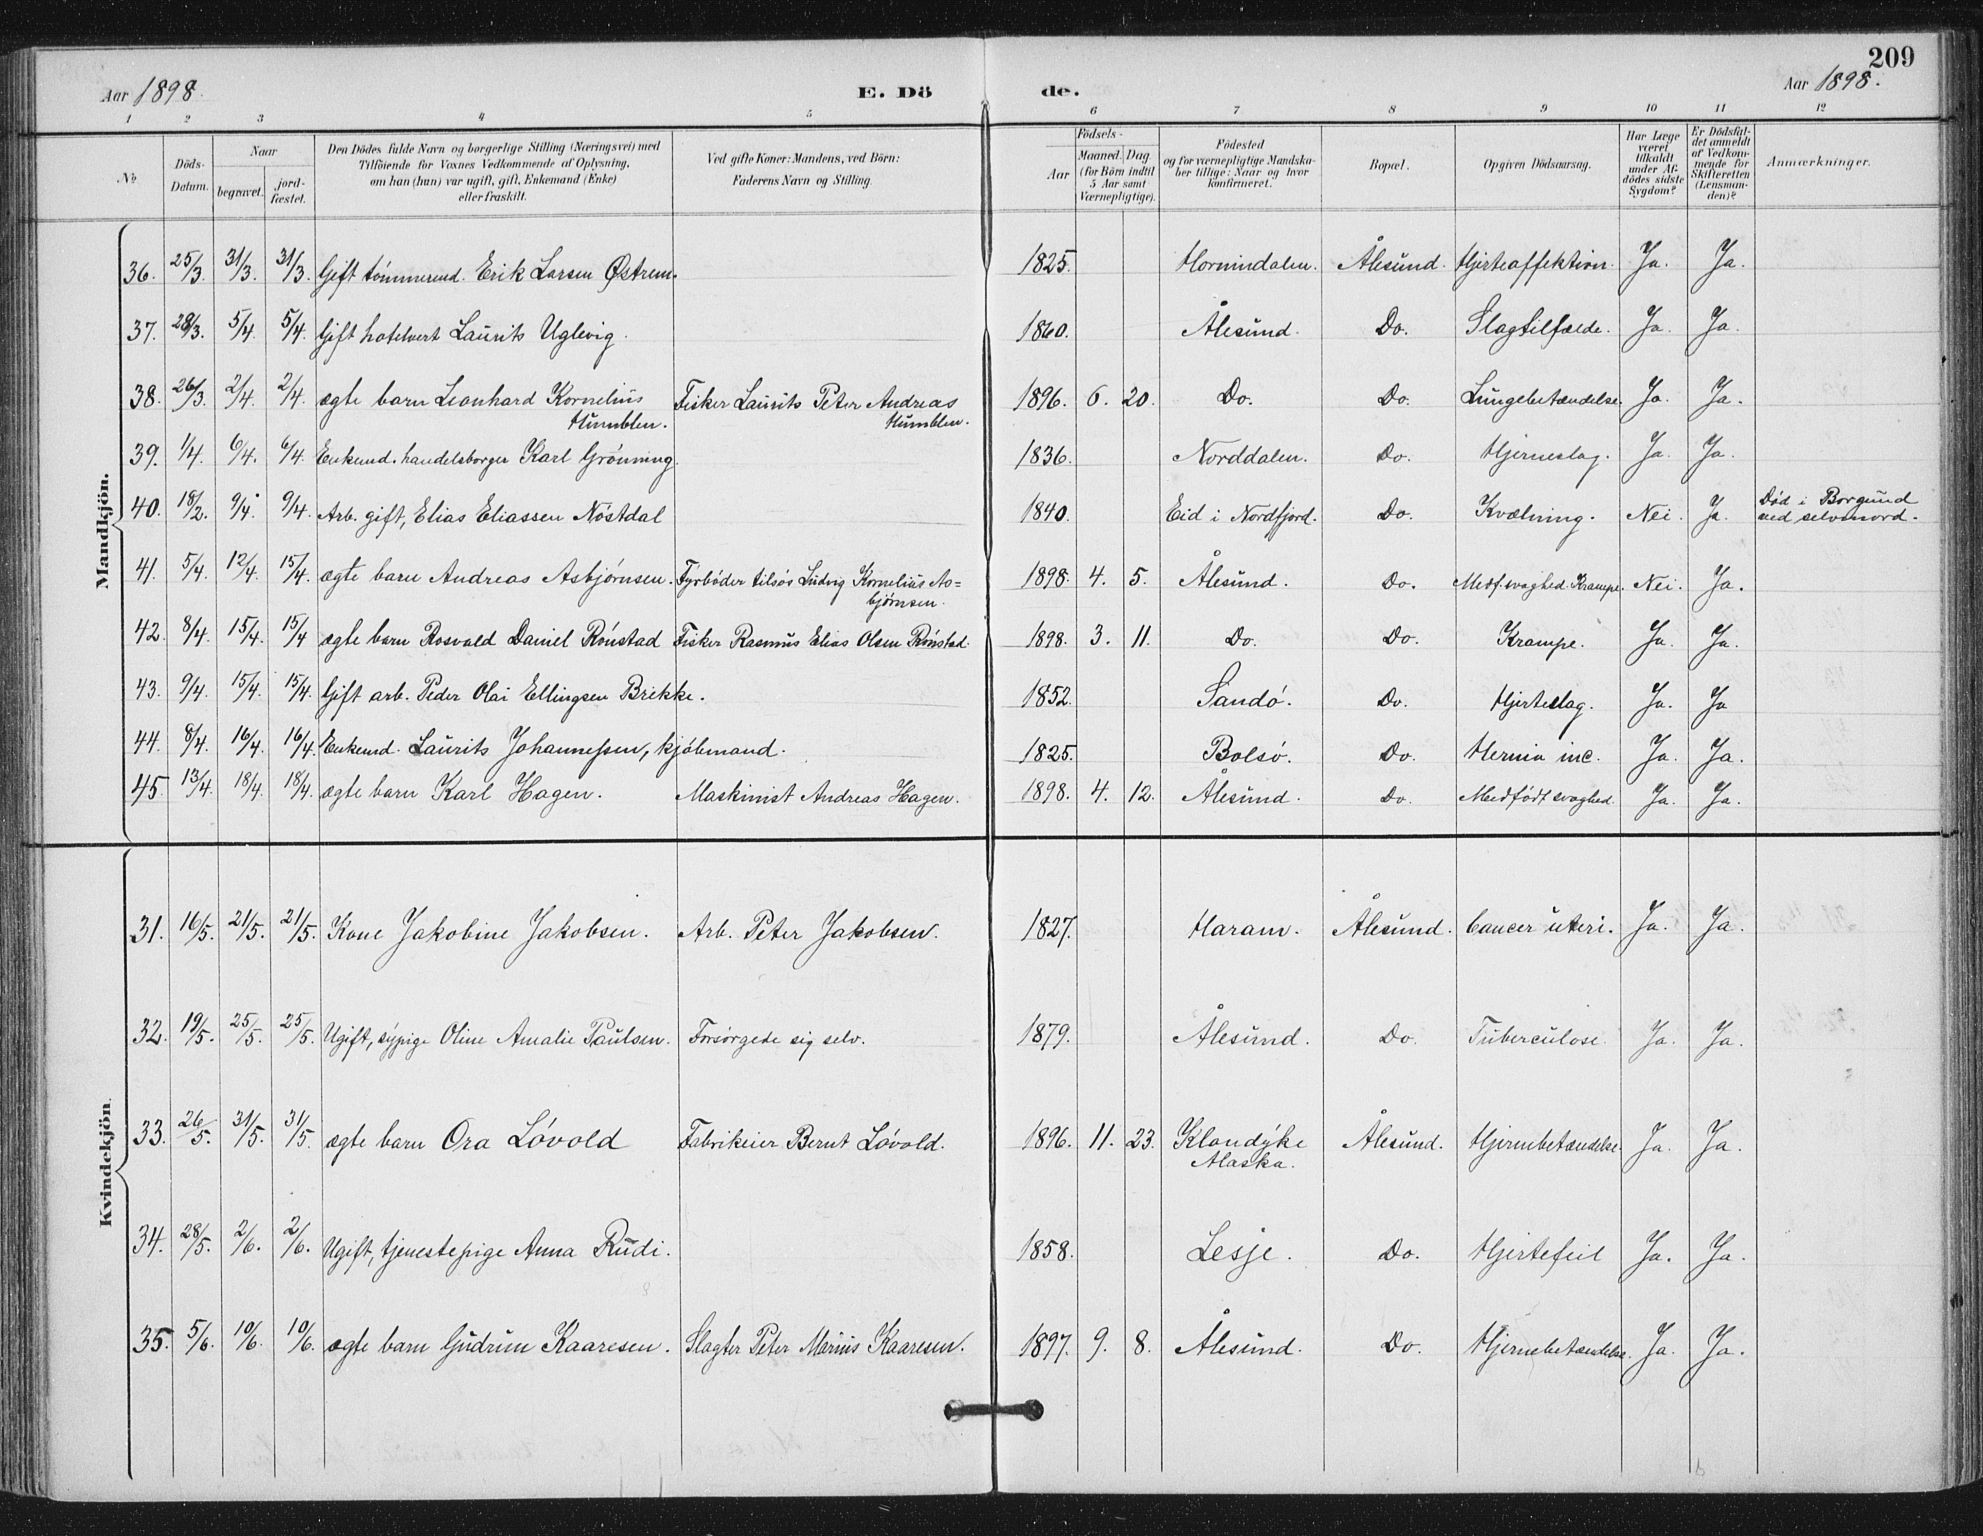 209
Aar 1898. E. Dö de. Aar 1898.
1 2 3 4 5 6 7 8 9 10 11 12
No. Döds-Datum. Naar begravet. jord-fæstet. Den Dödes fulde Navn og borgerlige Stilling (Næringsvei) med Tilföiende for Voxnes Vedkommende af Oplysning, om han (hun) var ugift, gift, Enkemand (Enke) eller fraskilt. Ved gifte Koner: Mandens, ved Börn: Faderens Navn og Stilling. Födsels- Aar Maaned. Dag (for Börn indtil 5 Aar samt Værnepligtige). Födested og for værnepligtige Mandskaber tillige: Naar og hvor konfirmeret. Bopæl. Opgiven Dödsaarsag. Har Læge været tilkaldt under Afdödes sidste Sygdom? Er Dödsfaldet anmeldt af Vedkommende for Skifteretten (Lensmanden)? Anmærkninger.
Mandkjön.
36. 25/3 31/3. 31/3. Gift tömmermd. Erik Larsen Østrem. 1825. Hornindalen. Ålesund. Hjerteaffektion. Ja. Ja.
37. 28/3. 5/4 5/4. Gift hotelvert Laurits Uglevig. 1860. Ålesund. Do. Slagtilfælde. Ja. Ja.
38. 26/3. 2/4. 2/4. ægte barn Leonhard Kornelius Fisker Laurits Peter Andreas 1896. 6. 20. Do. Do. Lungebetændelse. Ja. Ja.
Humblen. Humblen.
39. 1/4. 6/4. 6/4. Enkemd. handelsborger Karl Grönning. 1836. Norddalen. Do. Hjerneslag. Ja. Ja.
40. 18/2. 9/4. 9/4. Arb. gift, Elias Eliassen Nöstdal 1840. Eid i Nordfjord. Do. Kvælning. Nei. Ja. Død i Borgund
ved selvmord.
41. 5/4. 12/4. 15/4. ægte barn Andreas Asbjørnsen. Fyrböder tilsös Ludvig Kornelius As= 1898. 4. 5. Ålesund. Do. Medf. svaghed. Krampe. Nei. Ja.
bjørnsen.
42. 8/4. 15/4. 15/4 ægte barn Rosvald Daniel Rönstad Fisker Rasmus Elias Olsen Rönstad. 1898. 3. 11. Do. Do. Krampe. Ja. Ja.
43. 9/4. 15/4. 15/4. Gift arb. Peder Olai Ellingsen Brekke. 1852. Sandö. Do. Hjerteslag. Ja. Ja
44. 8/4. 16/4. 16/4. Enkemd. Laurits Johannessen, kjöbmand. 1825. Bolsö. Do. Hernia inc. Ja. Ja.
45. 13/4. 18/4. 18/4. ægte barn Karl Hagen. Maskinist Andreas Hagen. 1898. 4. 12. Ålesund. Do. Medfödt svaghed. Ja. Ja.
Kvindekjön.
31. 16/5. 21/5. 21/5. Kone Jakobine Jakobsen. Arb. Peter Jakobsen. 1827. Haram. Ålesund. Cancer uteri. Ja. Ja.
32. 19/5. 25/5. 25/5. Ugift, sypige Oline Amalie Paulsen. Forsörgede sig selv. 1879. Ålesund. Do. Tuberculose. Ja. Ja.
33. 26/5. 31/5. 31/5. ægte barn Ora Lövold Fabrikeier Bernt Lövold. 1896. 11. 23. Klondyke Ålesund. Hjernebetændelse. Ja. Ja.
Alaska.
34. 28/5. 2/6. 2/6. Ugift, tjenestepige Anna Rudi. 1858. Lesje. Do. Hjertefeil Ja. Ja.
35. 5/6. 10/6. 10/6. ægte barn Gudrun Kaaresen. Slagter Peter Marius Kaaresen. 1897. 9. 8. Ålesund. Do. Hjernebetændelse. Ja. Ja.